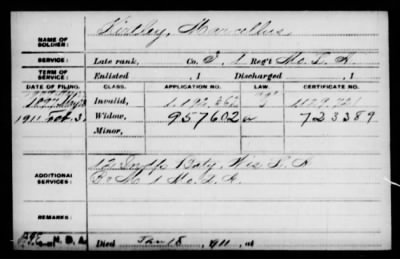 NAME OF SOLDIER: Kirtley, Marcellus
SERVICE: Late rank, Co. I, 1 Reg't Mo. L. A.
TERM OF SERVICE: Enlisted , 1 Discharged , 1
DATE OF FILING. CLASS. APPLICATION NO. LAW. CERTIFICATE NO.
1897 Invalid, 1.192.
1911 Feb. 3 Widow, 957602 723389
Minor,
ADDITIONAL SERVICES: 12 Batty, Wis L. A.
M 1 Mo. L. A.
REMARKS:
Died Jan 18, 1911, at